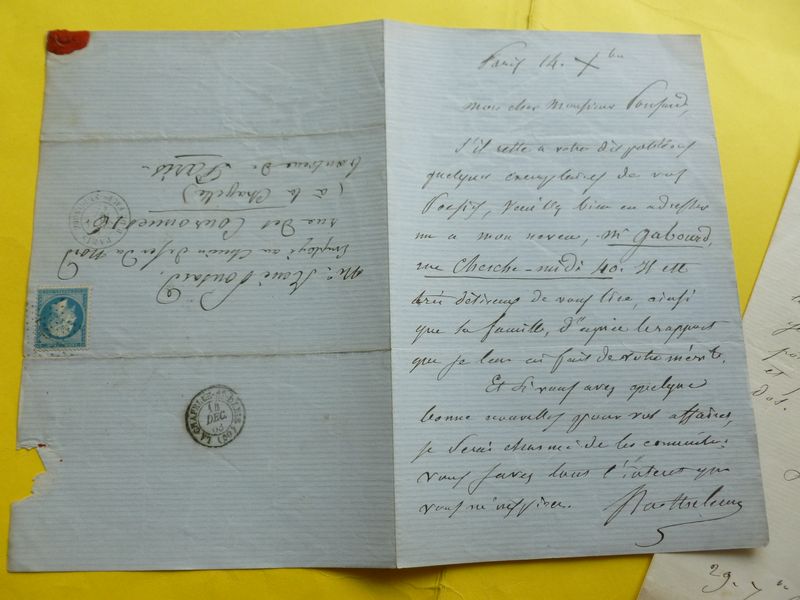 Paris 14. Xbre
mon cher Monsieur Ponsard,
S'il reste à votre disposition
quelques exemplaires de vos
Poésies, veuillez bien en adresser
un a mon neveu, Mr Gabourd,
rue Cherche-midi 40. Il est
très désireux de vous lire, ainsi
que sa famille, d'après le rapport
que je leur ai fait de votre mérite.
Et si vous avez quelque
bonne nouvelle pour vos affaires,
je serai charmé de les connaître.
vous savez tout l'intérêt que
vous m'inspirez. Barthelemy
Mr René Ponsard,
Employé au Chemin de fer du Nord
rue des Couronnes 16
(à la Chapelle)
banlieue de Paris
LA CHAPELLE-ST-DENIS
DEC.
29.